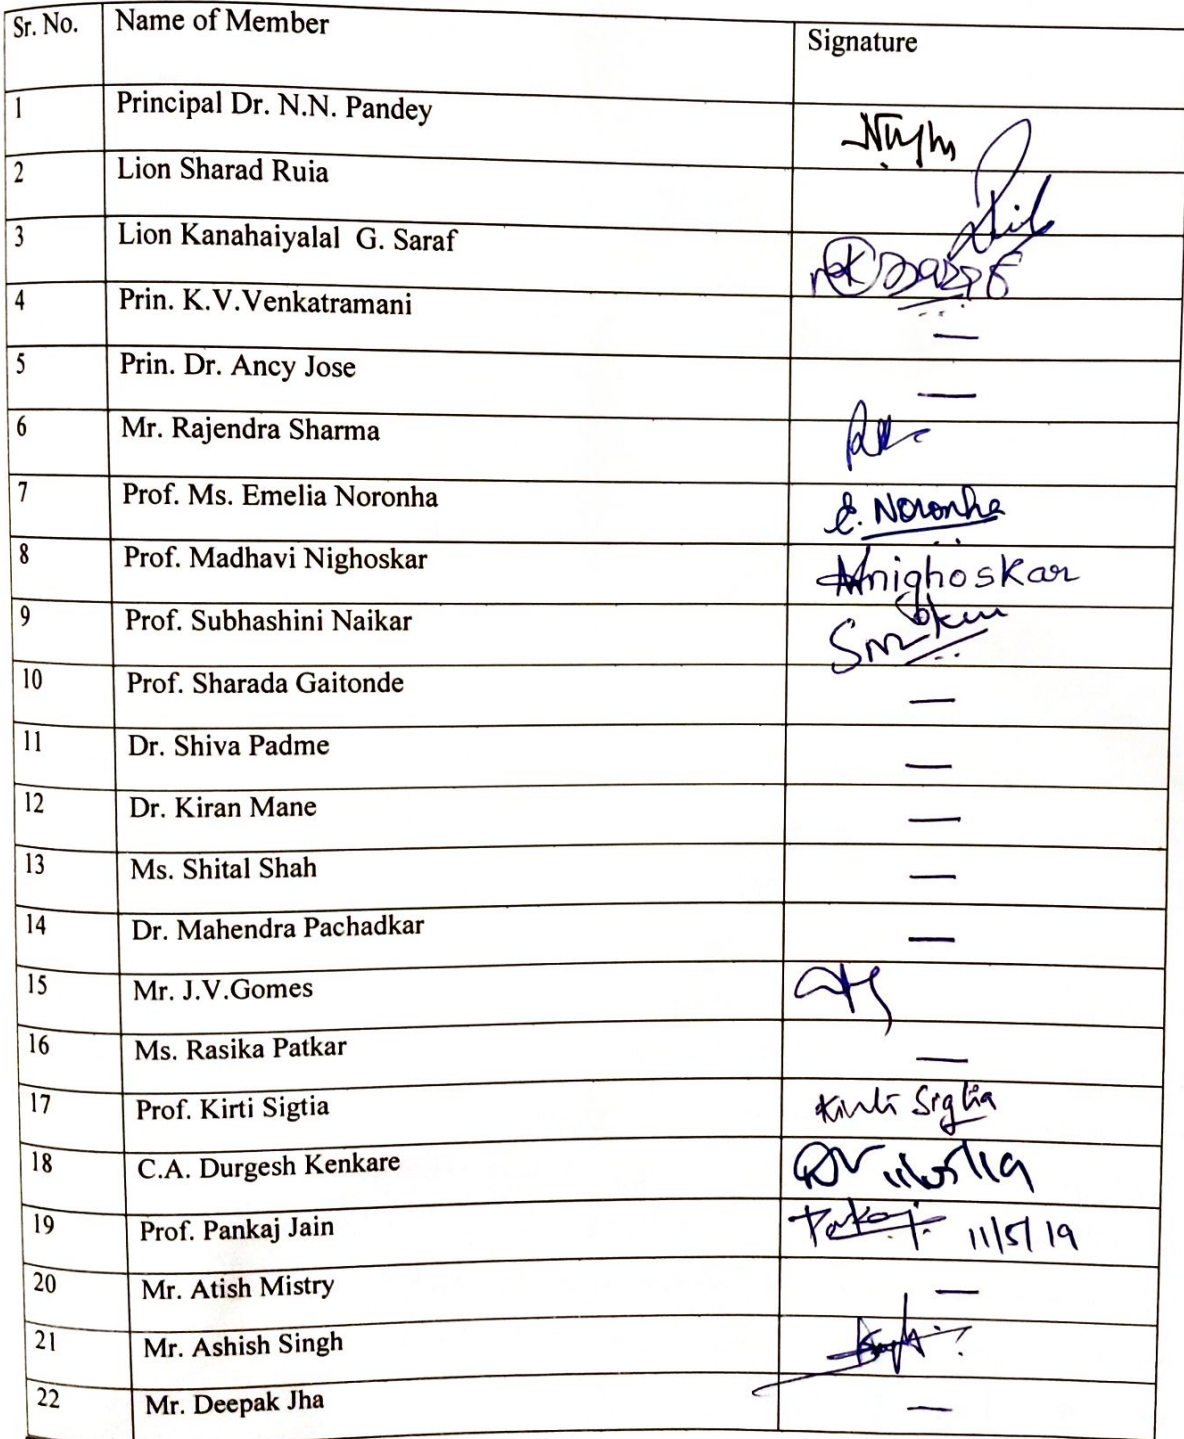 Sr. No. Name of Member Signature
1 Principal Dr. N.N. Pandey
2 Lion Sharad Ruia
3 Lion Kanahaiyalal G. Saraf
4 Prin. K.V.Venkatramani —
5 Prin. Dr. Ancy Jose —
6 Mr. Rajendra Sharma
7 Prof. Ms. Emelia Noronha E. Noronha
8 Prof. Madhavi Nighoskar Mnighoskar
9 Prof. Subhashini Naikar
10 Prof. Sharada Gaitonde —
11 Dr. Shiva Padme —
12 Dr. Kiran Mane —
13 Ms. Shital Shah —
14 Dr. Mahendra Pachadkar —
15 Mr. J.V.Gomes
16 Ms. Rasika Patkar —
17 Prof. Kirti Sigtia Kirti Sigtia
18 C.A. Durgesh Kenkare 11/05/19
19 Prof. Pankaj Jain 11/5/19
20 Mr. Atish Mistry —
21 Mr. Ashish Singh
22 Mr. Deepak Jha —